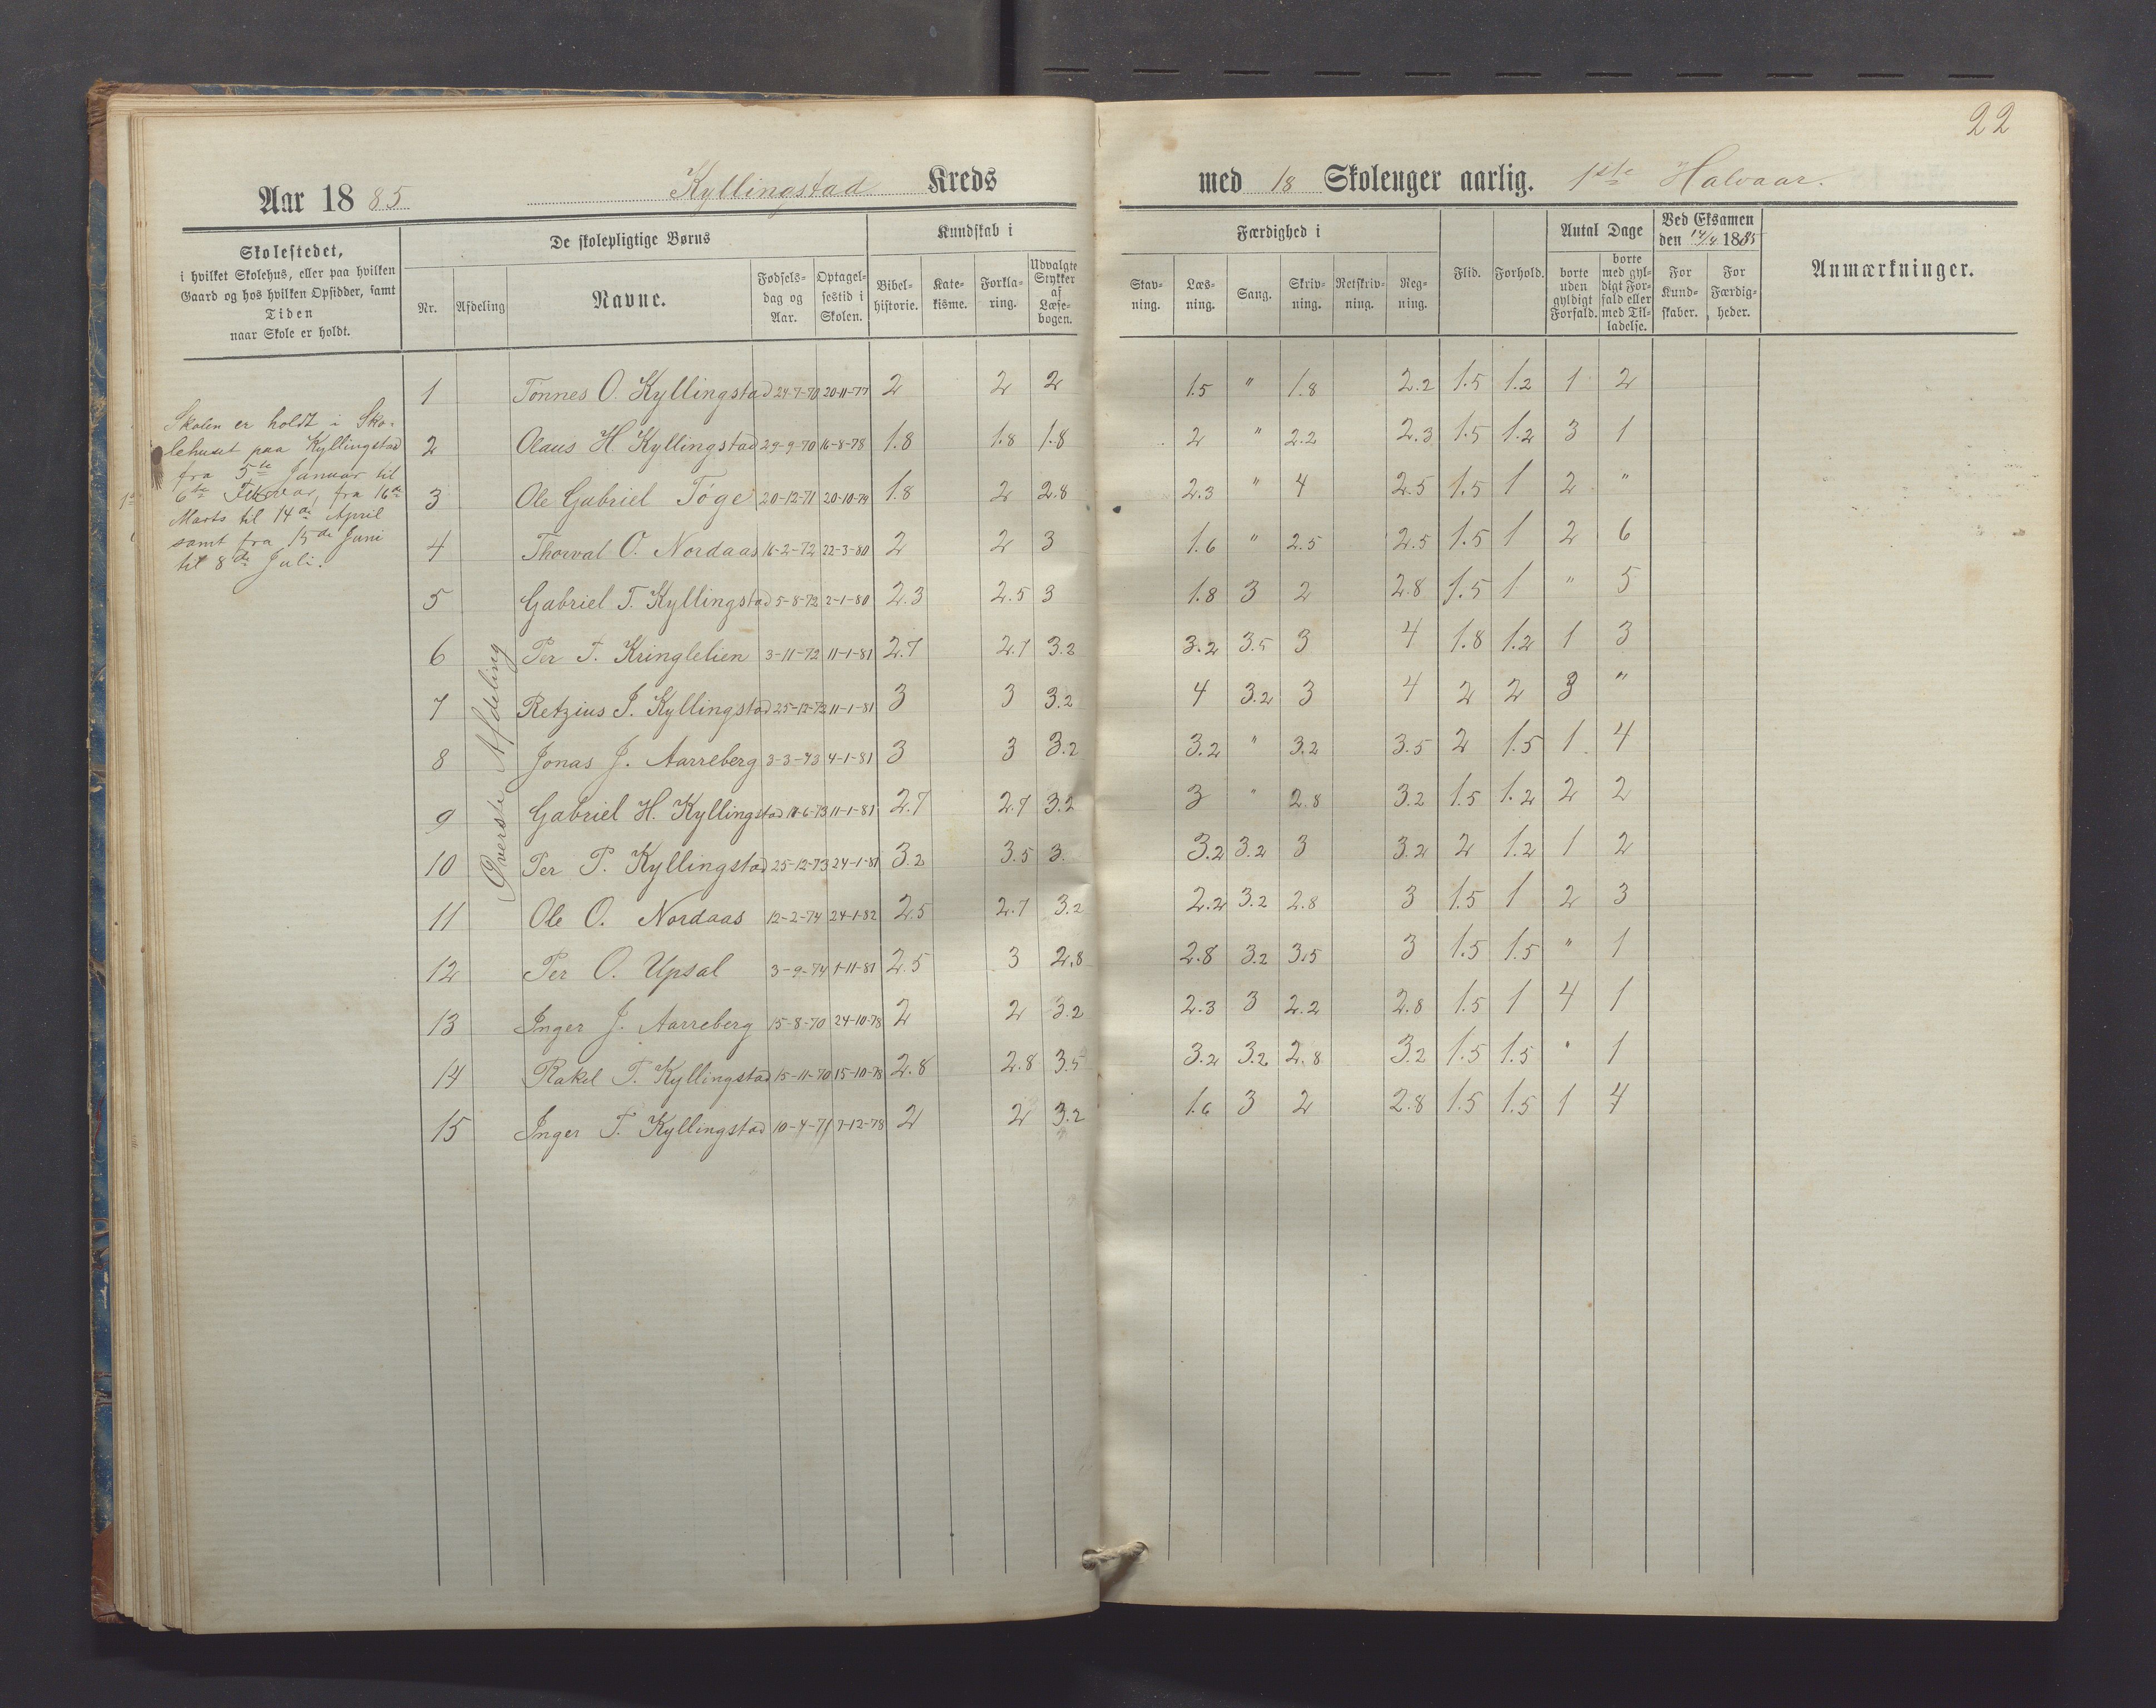 22
Aar 1885 Kyllingstad Kreds med 18 Skoleuger aarlig. 1ste Halvaar.
Skolestedet,
i hvilket Skolehus, eller paa hvilken
Gaard og hos hvilken Opsidder, samt
Tiden
naar Skole er holdt.
De skolepligtige Børns
Nr. Afdeling Navne.
Fødsels-
dag og
Aar.
Optagel-
sestid i
Skolen.
Kundskab i
Bibel-
historie.
Kate-
kisme.
Forkla-
ring.
Udvalgte
Stykker
af
Læse-
bogen.
Færdighed i
Stav-
ning.
Læs-
ning.
Sang.
Skriv-
ning.
Retskriv-
ning.
Reg-
ning.
Flid. Forhold.
Antal Dage
borte
uden
gyldigt
Forfald.
borte
med gyl-
digt For-
fald eller
med Til-
ladelse.
Ved Eksamen
den 14/4 1885
For
Kund-
skaber.
For
Færdig-
heder.
Anmærkninger.
Skolen er holdt i Sko-
lehuset paa Kyllingstad
fra 5te Januar til
6te Februar, fra 16de
Marts til 14de April
samt fra 15de Juni
til 8de Juli.
Øverste Afdeling
1 Tönnes O. Kyllingstad 24-7-70 20-11-77 2 2 2 1.5 " 1.8 2.2 1.5 1.2 1 2
2 Olaus H Kyllingstad 29-9-70 16-8-78 1.8 1.8 1.8 2 " 2.2 2.3 1.5 1.2 3 1
3 Ole Gabriel Töge 20-12-71 20-10-79 1.8 2 2.8 2.3 " 4 2.5 1.5 1 2 "
4 Thorval O. Nordaas 16-2-72 22-3-80 2 2 3 1.6 " 2.5 2.5 1.5 1 2 6
5 Gabriel T. Kyllingstad 5-8-72 2-1-80 2.3 2.5 3 1.8 3 2 2.8 1.5 1 " 5
6 Per T. Kringlelien 3-11-72 11-1-81 2.7 2.7 3.2 3.2 3.5 3 4 1.8 1.2 1 3
7 Retzius J. Kyllingstad 25-12-72 11-1-81 3 3 3.2 4 3.2 3 4 2 2 3 "
8 Jonas J. Aarreberg 3-3-73 4-1-81 3 3 3.2 3.2 " 3.2 3.5 2 1.5 1 4
9 Gabriel H. Kyllingstad 11-6-73 11-1-81 2.7 2.7 3.2 3 " 2.8 3.2 1.5 1.2 2 2
10 Per P. Kyllingstad 25-12-73 24-1-81 3.2 3.5 3. 3.2 3.2 3 3.2 2 1.2 1 2
11 Ole O. Nordaas 12-2-74 24-1-82 2.5 2.7 3.2 2.2 3.2 2.8 3 1.5 1 2 3
12 Per O. Upsal 3-9-74 1-11-81 2.5 3 2.8 2.8 3.2 3.5 3 1.5 1.5 " 1
13 Inger J. Aarreberg 15-8-70 24-10-78 2 2 3.2 2.3 3 2.2 2.8 1.5 1 4 1
14 Rakel T. Kyllingstad 15-11-70 15-10-78 2.8 2.8 3.5 3.2 3.2 2.8 3.2 1.5 1.5 " 1
15 Inger T. Kyllingstad 10-4-71 7-12-78 2 2 3.2 1.6 3 2 2.8 1.5 1.5 1 4